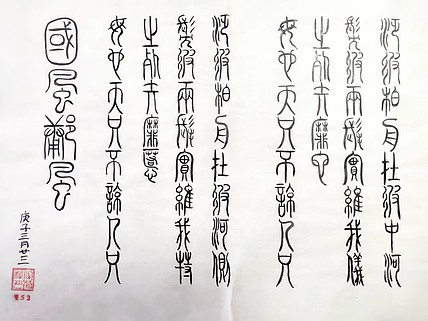 汎彼柏舟在彼中河
髧彼兩髦實維我儀
之死矢靡它
母也天只不諒人只
汎彼柏舟在彼河側
髧彼兩髦實維我特
之死矢靡慝
母也天只不諒人只
國風鄘風
庚子三月廿三